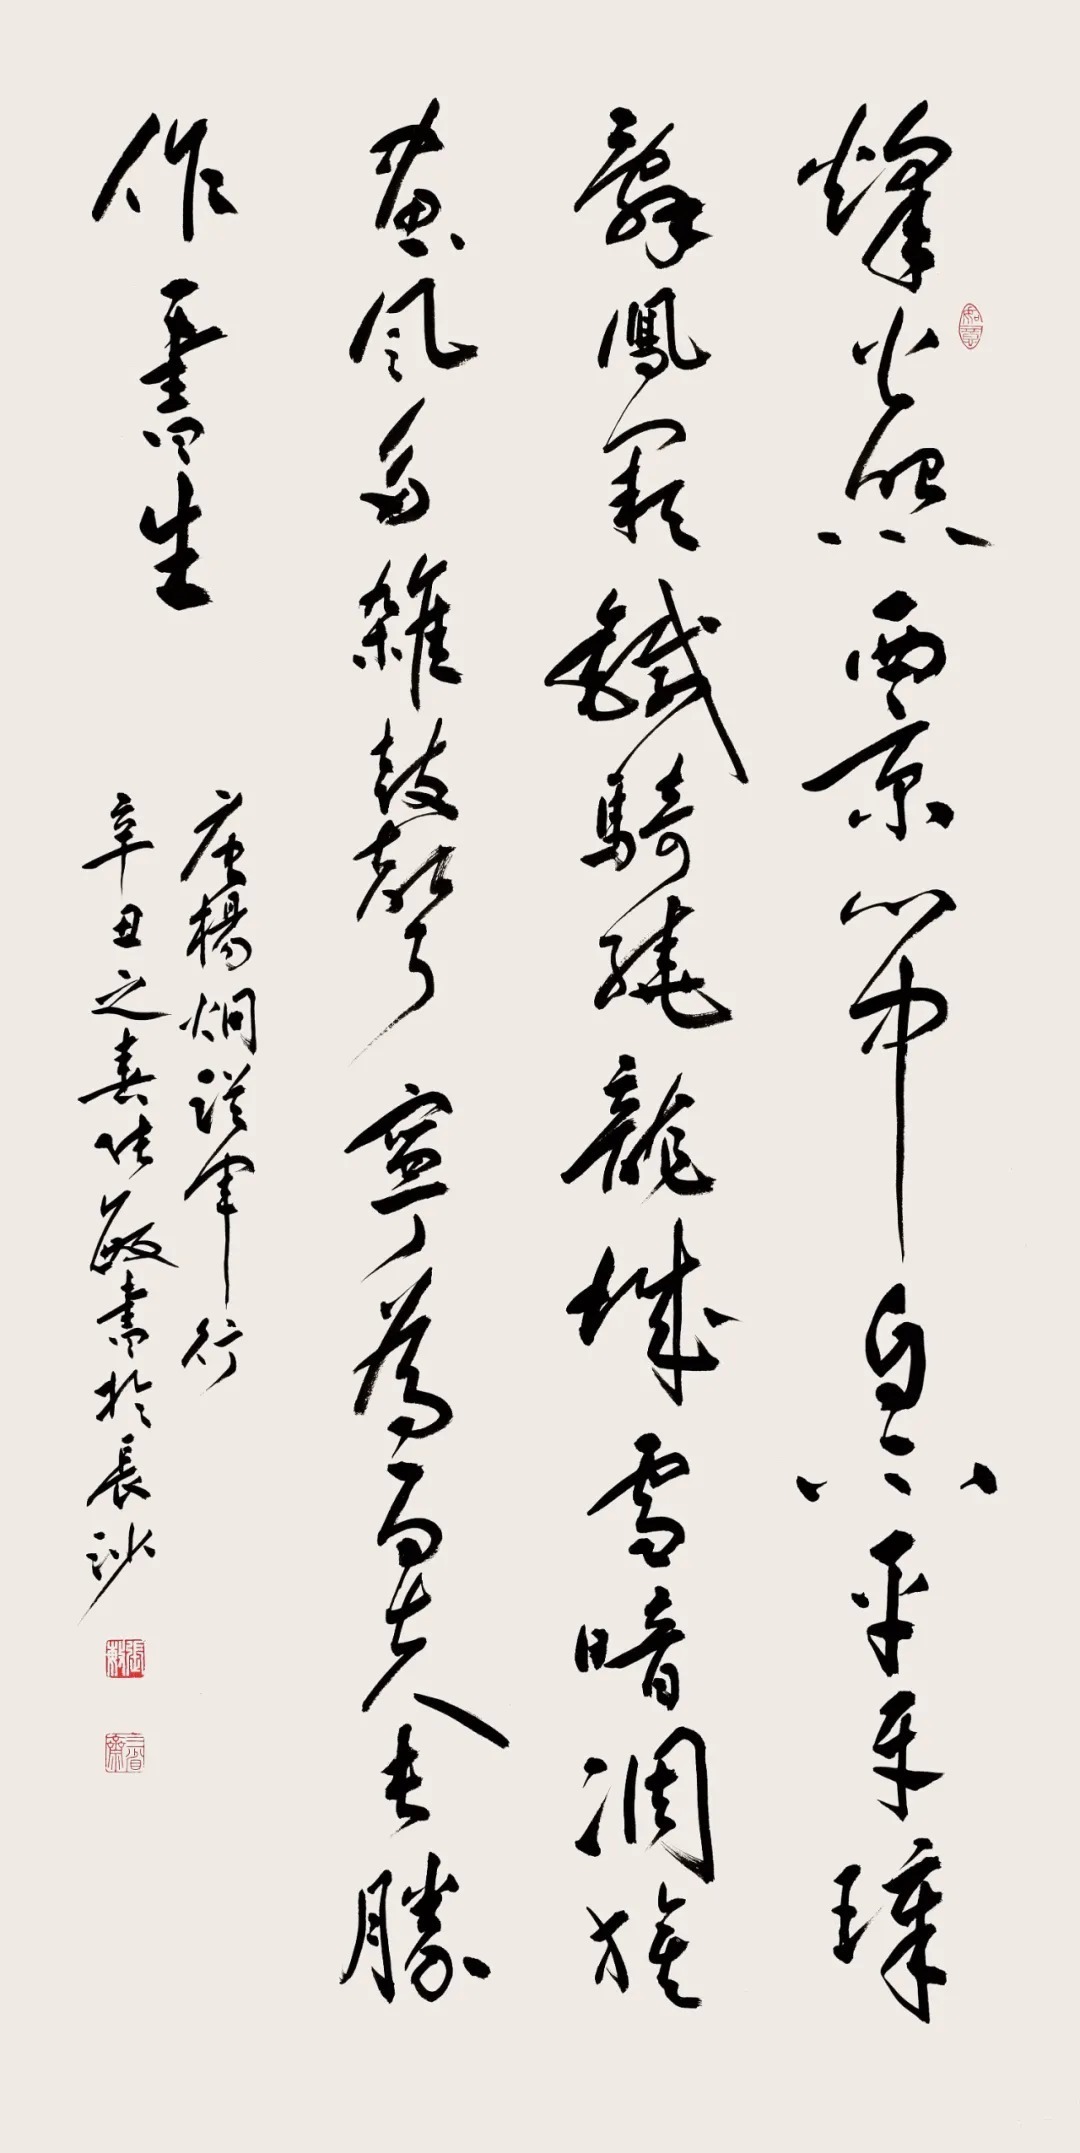 烽火照西京心中自不平牙璋
辭鳳闕鐵騎繞龍城雪暗凋旗
畫風多雜鼓聲寧為百夫長勝
作一書生
唐楊炯從軍行
辛丑之春張敏書於長沙
張敏
三省齋